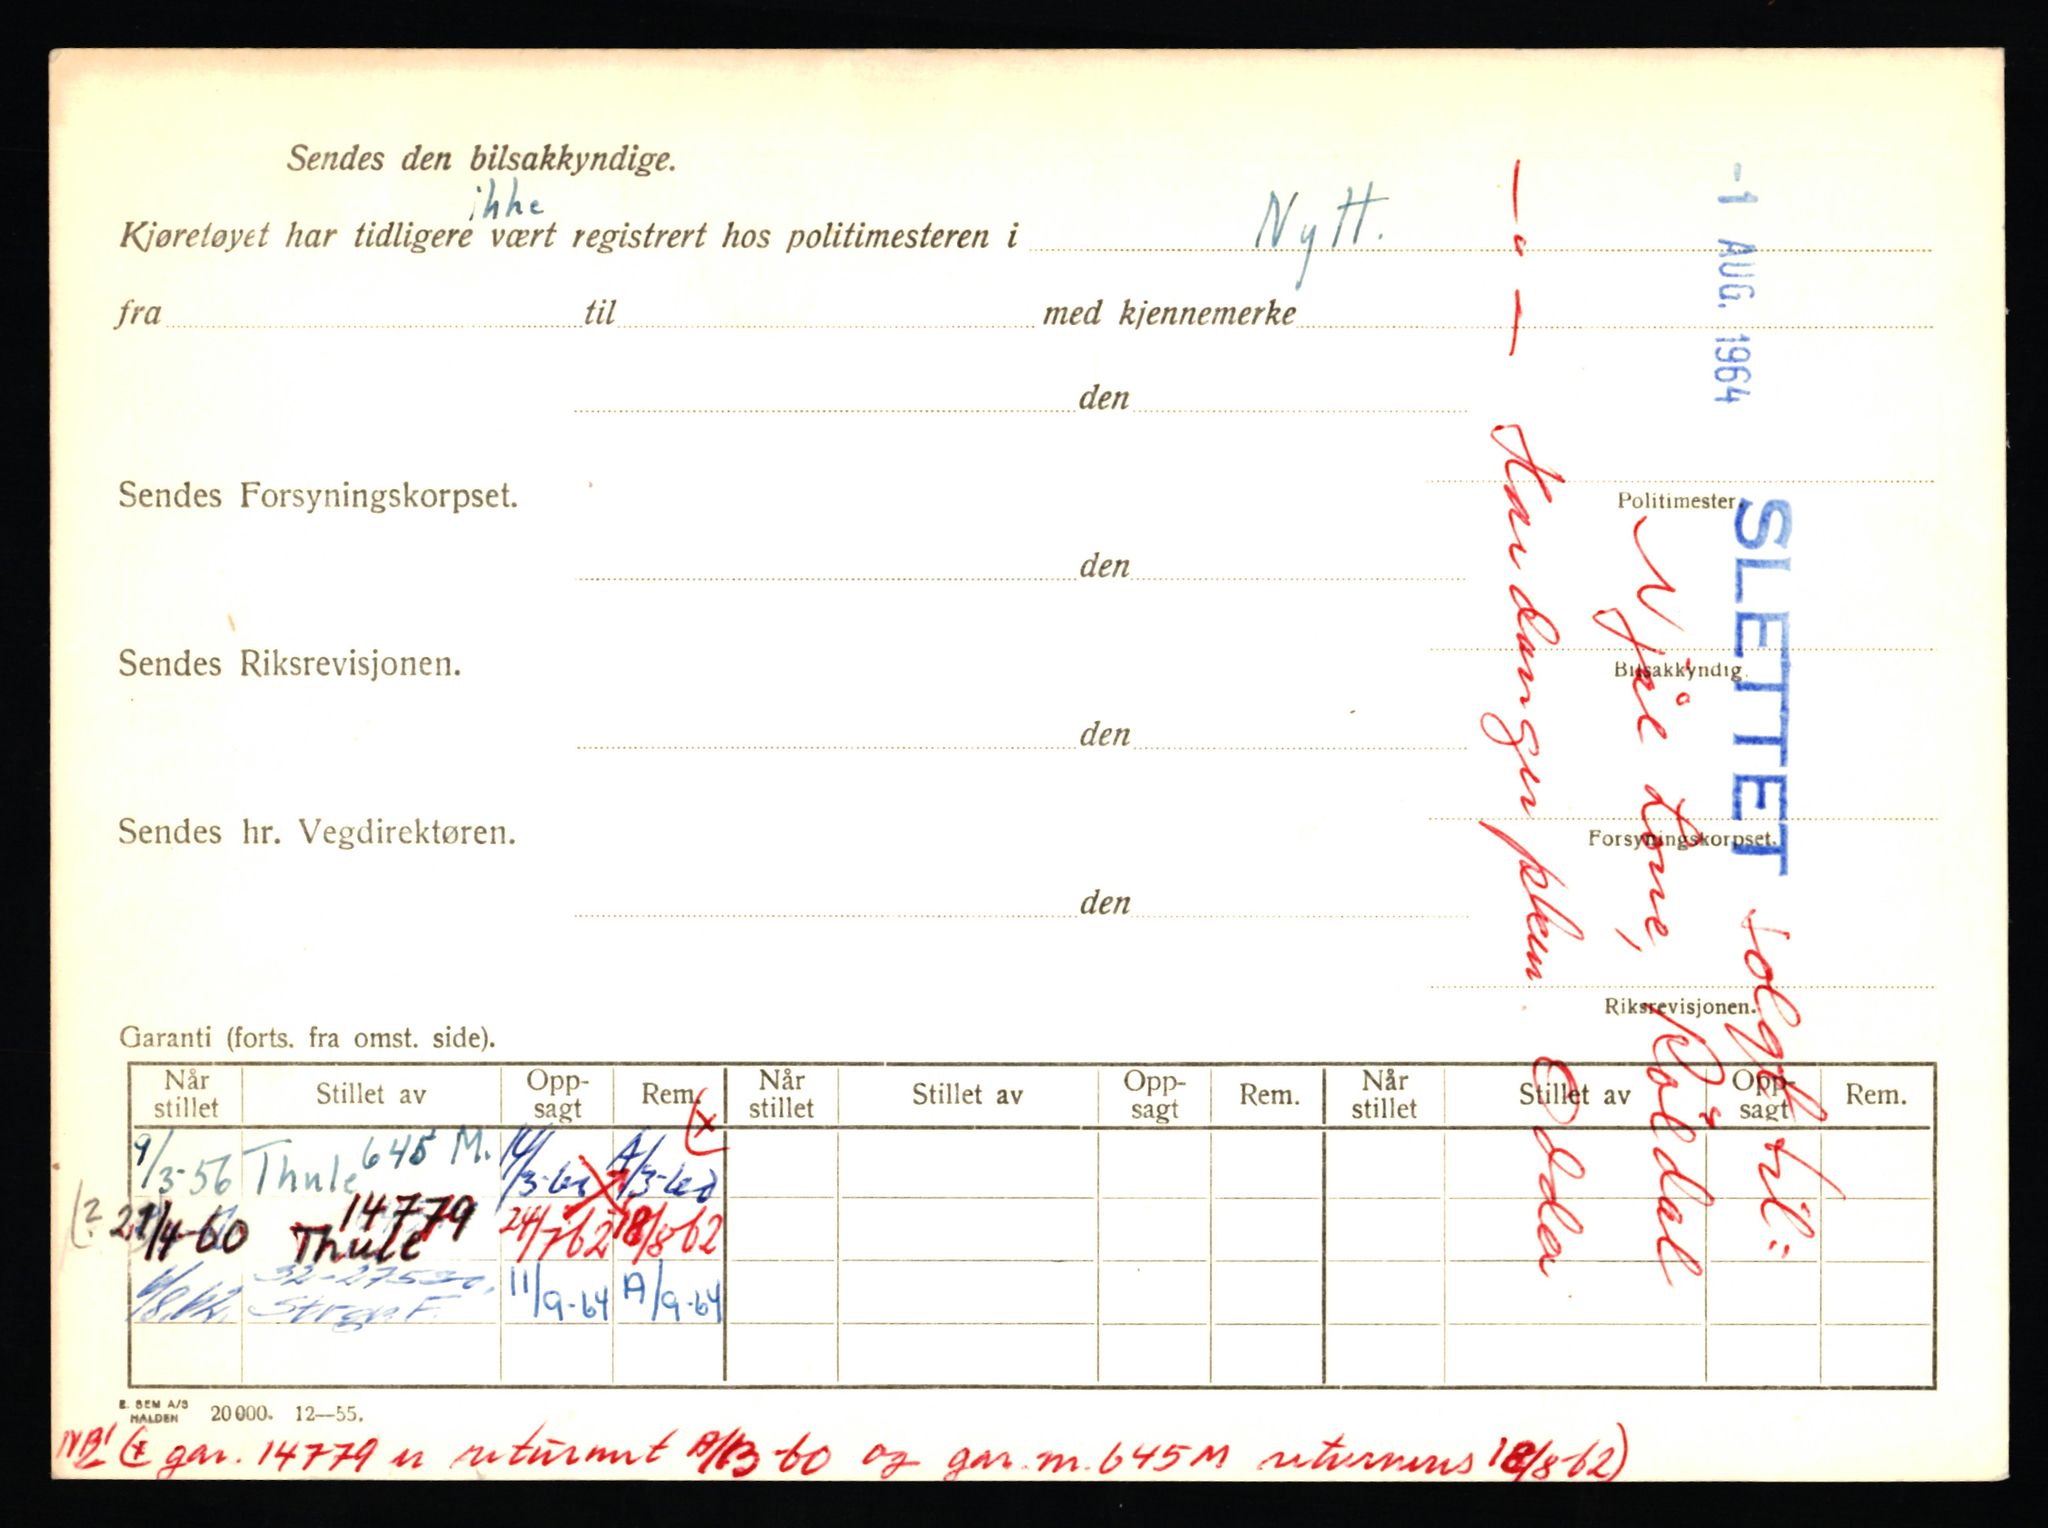 Sendes den bilsakkyndige.
ikke
Kjøretøyet har tidligere vært registrert hos politimesteren i Nytt.
fra til med kjennemerke
den
Sendes Forsyningskorpset.
Politimester.
den
Sendes Riksrevisjonen.
Bilsakkyndig.
den
Sendes hr. Vegdirektøren.
Forsyningskorpset.
den
Riksrevisjonen.
-1 AUG. 1964
SLETTET solgt til:
Njål Lone, Røldal
— " — Hardangerplan Odda
Garanti (forts. fra omst. side).
Når stillet Stillet av Opp-sagt Rem. Når stillet Stillet av Opp-sagt Rem. Når stillet Stillet av Opp-sagt Rem.
(x
9/3-56 Thule 645 M. 14/3-60 A/3-60
(? 21/4-60 Thule 14779 24/7 62 18/8-62
11/9-64 A/9-64
E. SEM A/S HALDEN 20000. 12—55.
NB! (x gar. 14779 er returnert A/3-60 og gar. m. 645 M returneres 18/8-62)